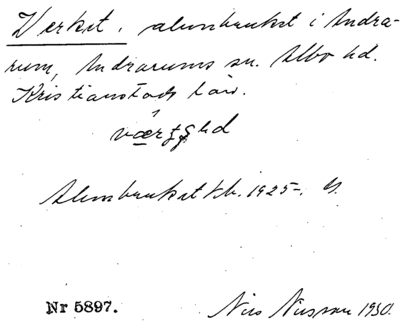 Verket. alunbruket i Andra-
rum, Andrarums sn. Albo hd.
Kristianstads län.
Alunbruket t.k. 1925.
Nr 5897. Nils Nilsson 1930.